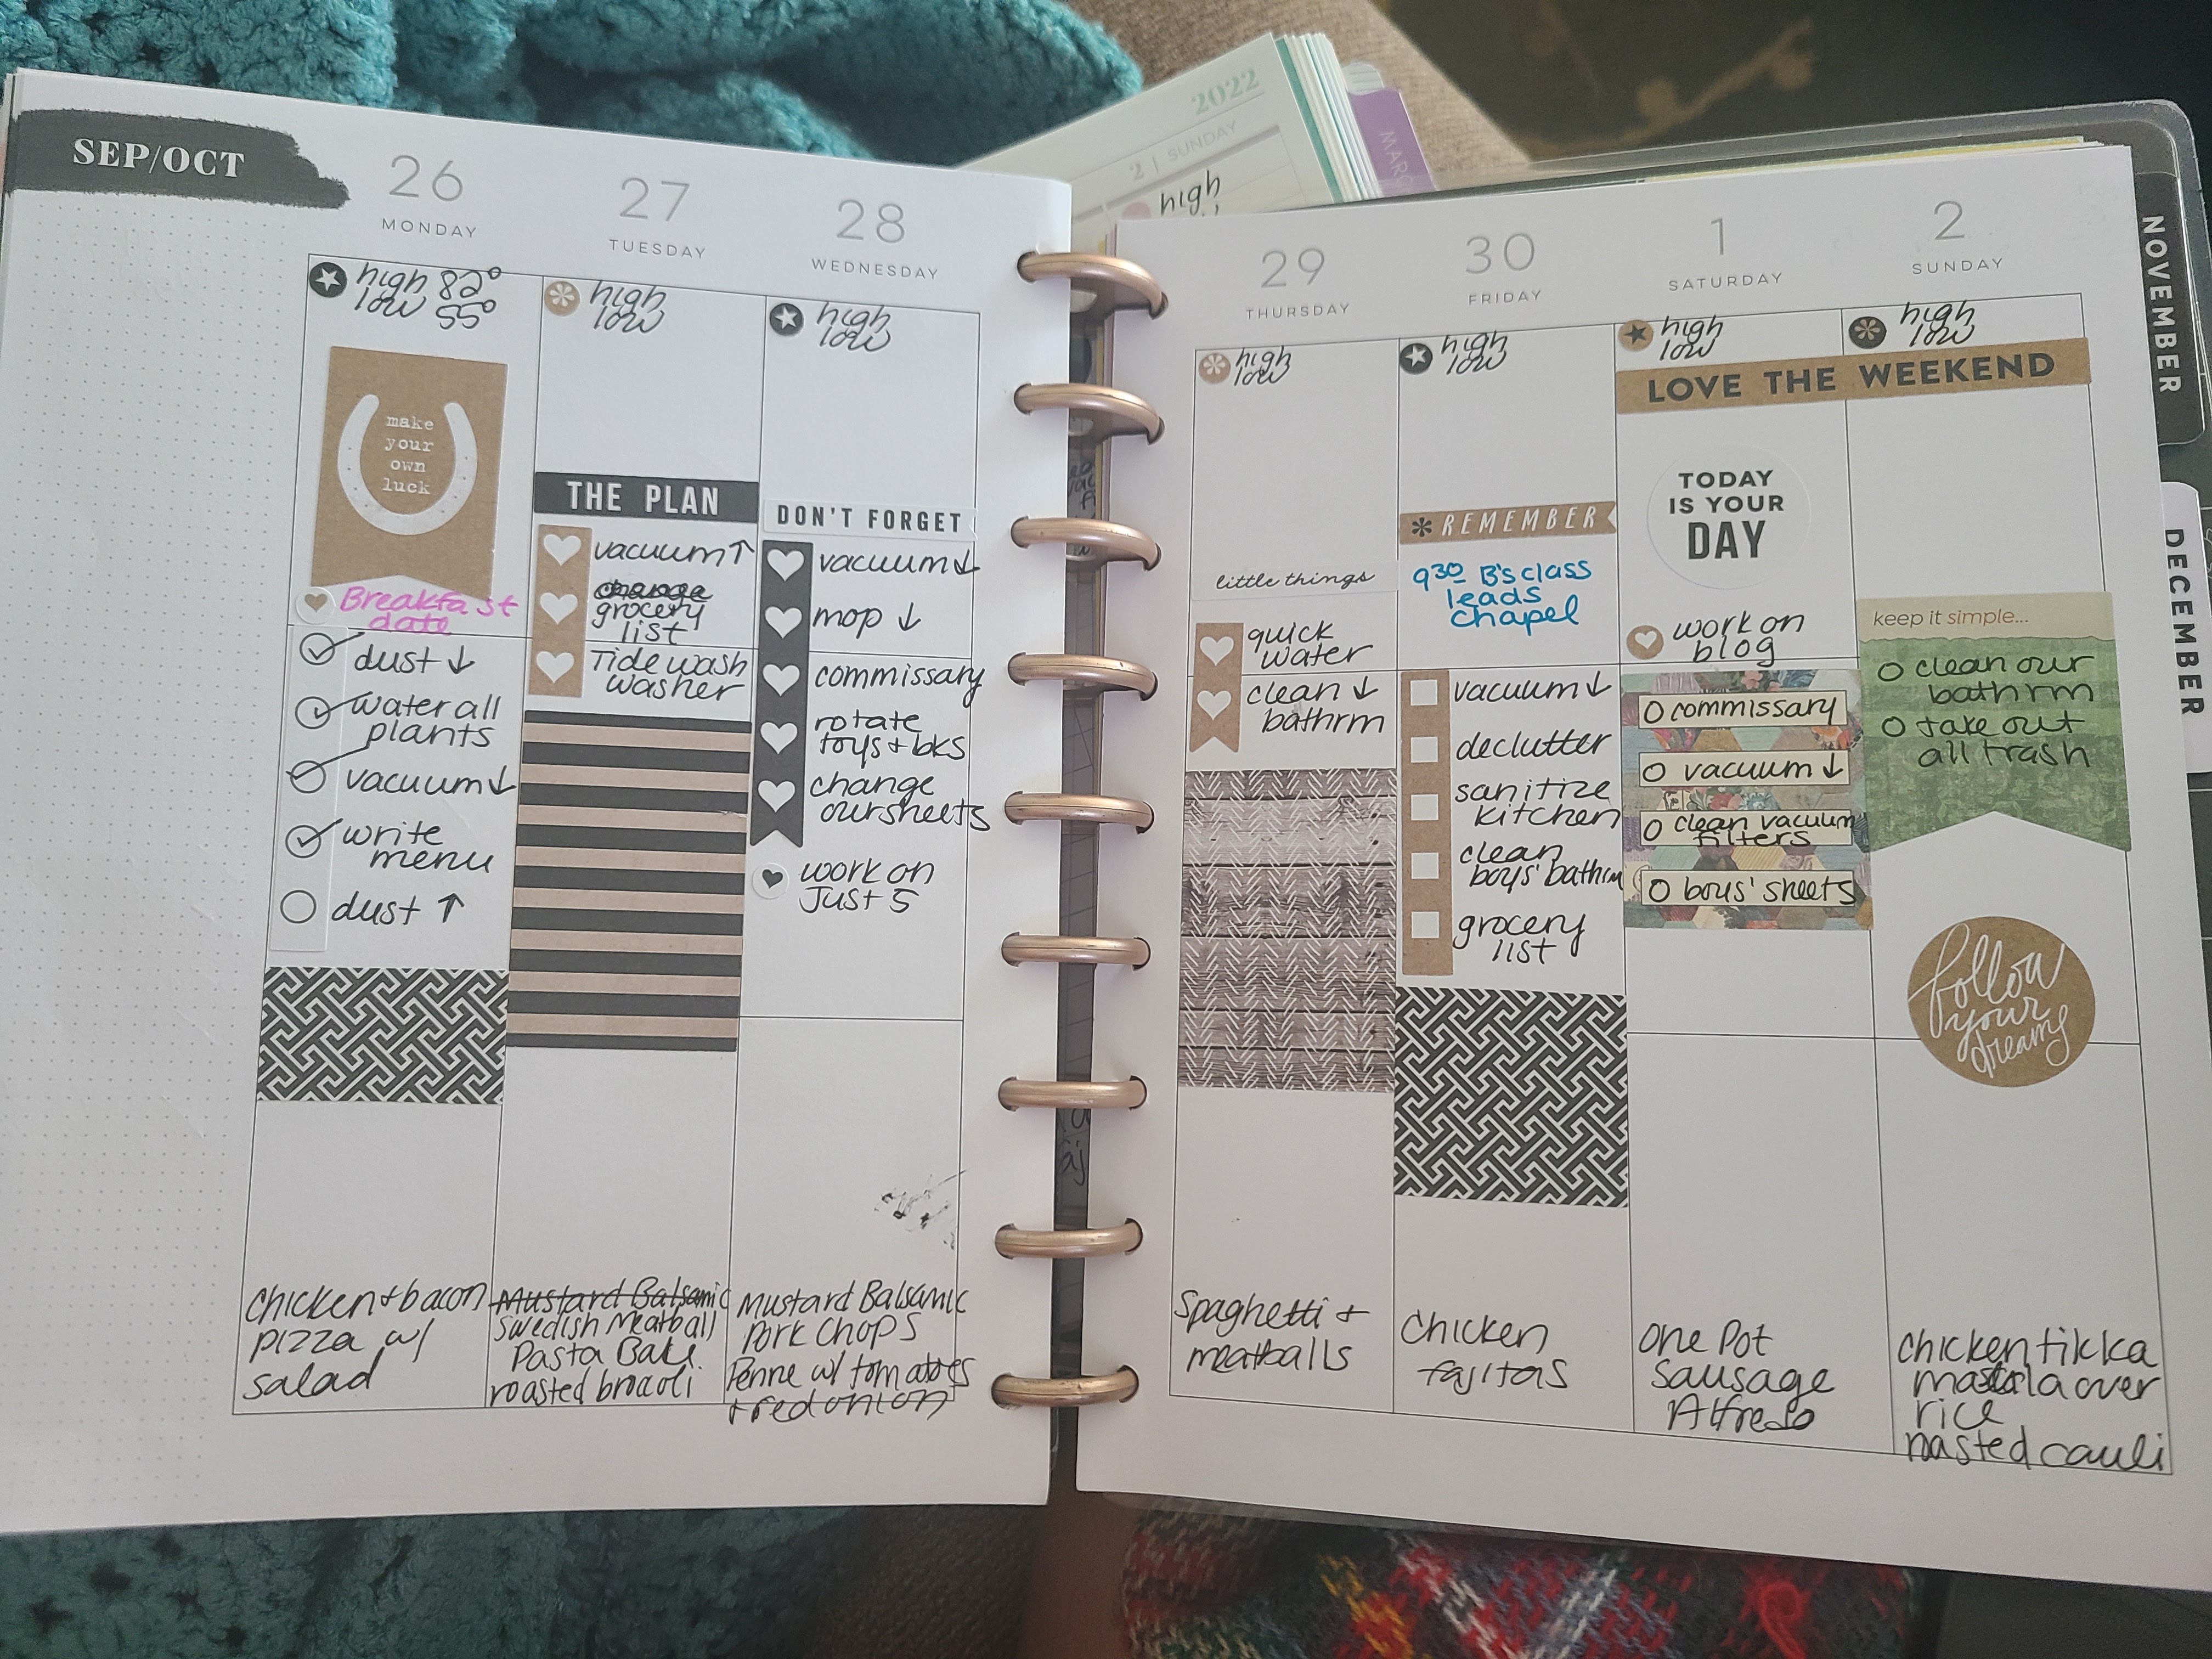 SEP/OCT
26
MONDAY
high 82°
low 55°
make
your
own
luck
Breakfast
date
dust ↓
water all
plants
vacuum ↓
write
menu
dust ↑
Chicken + bacon
pizza w/
salad
27
TUESDAY
high
low
THE PLAN
vacuum ↑
change
grocery
list
Tide wash
washer
Mustard Balsamic
Swedish Meatball
Pasta Bake
roasted brocoli
28
WEDNESDAY
high
low
DON'T FORGET
vacuum ↓
mop ↓
commissary
rotate
toys + bks
change
our sheets
work on
Just 5
Mustard Balsamic
Pork Chops
Penne w/ tomatoes
+ red onion
2022
2 | SUNDAY
high
29
THURSDAY
high
low
little things
quick
water
clean ↓
bathrm
Spaghetti +
meatballs
30
FRIDAY
high
low
* REMEMBER
930 B's class
leads
chapel
vacuum ↓
declutter
sanitize
kitchen
clean
boys' bathrm
grocery
list
Chicken
fajitas
1
SATURDAY
high
low
LOVE THE WEEKEND
TODAY
IS YOUR
DAY
work on
blog
O commissary
O vacuum ↓
O clean vacuum
filters
O boys' sheets
One Pot
Sausage
Alfredo
2
SUNDAY
high
low
keep it simple...
O clean our
bathrm
O take out
all trash
follow
your
dreams
chicken tikka
masala over
rice
roasted cauli
NOVEMBER
DECEMBER